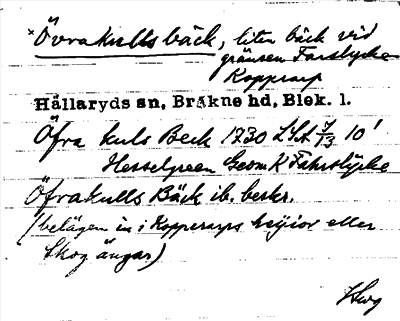 ×Övrakulls bäck, liten bäck vid
gränsen Farslycke
Kopparp
Hällaryds sn, Bräkne hd, Blek. l.
Öfra kuls Beck 1730 LSA 10'
Hesselgreen Geom K Fahrslÿcke
Öfrakulls Bäck ib. beskr.
(belägen in i Kopperarps heijior eller
Skog ängar)